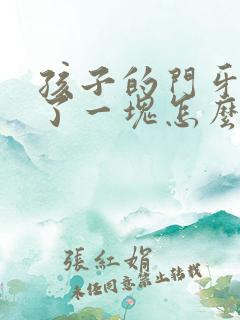 孩子的門牙
了一塊怎麼
張紅娟
未经同意禁止转载